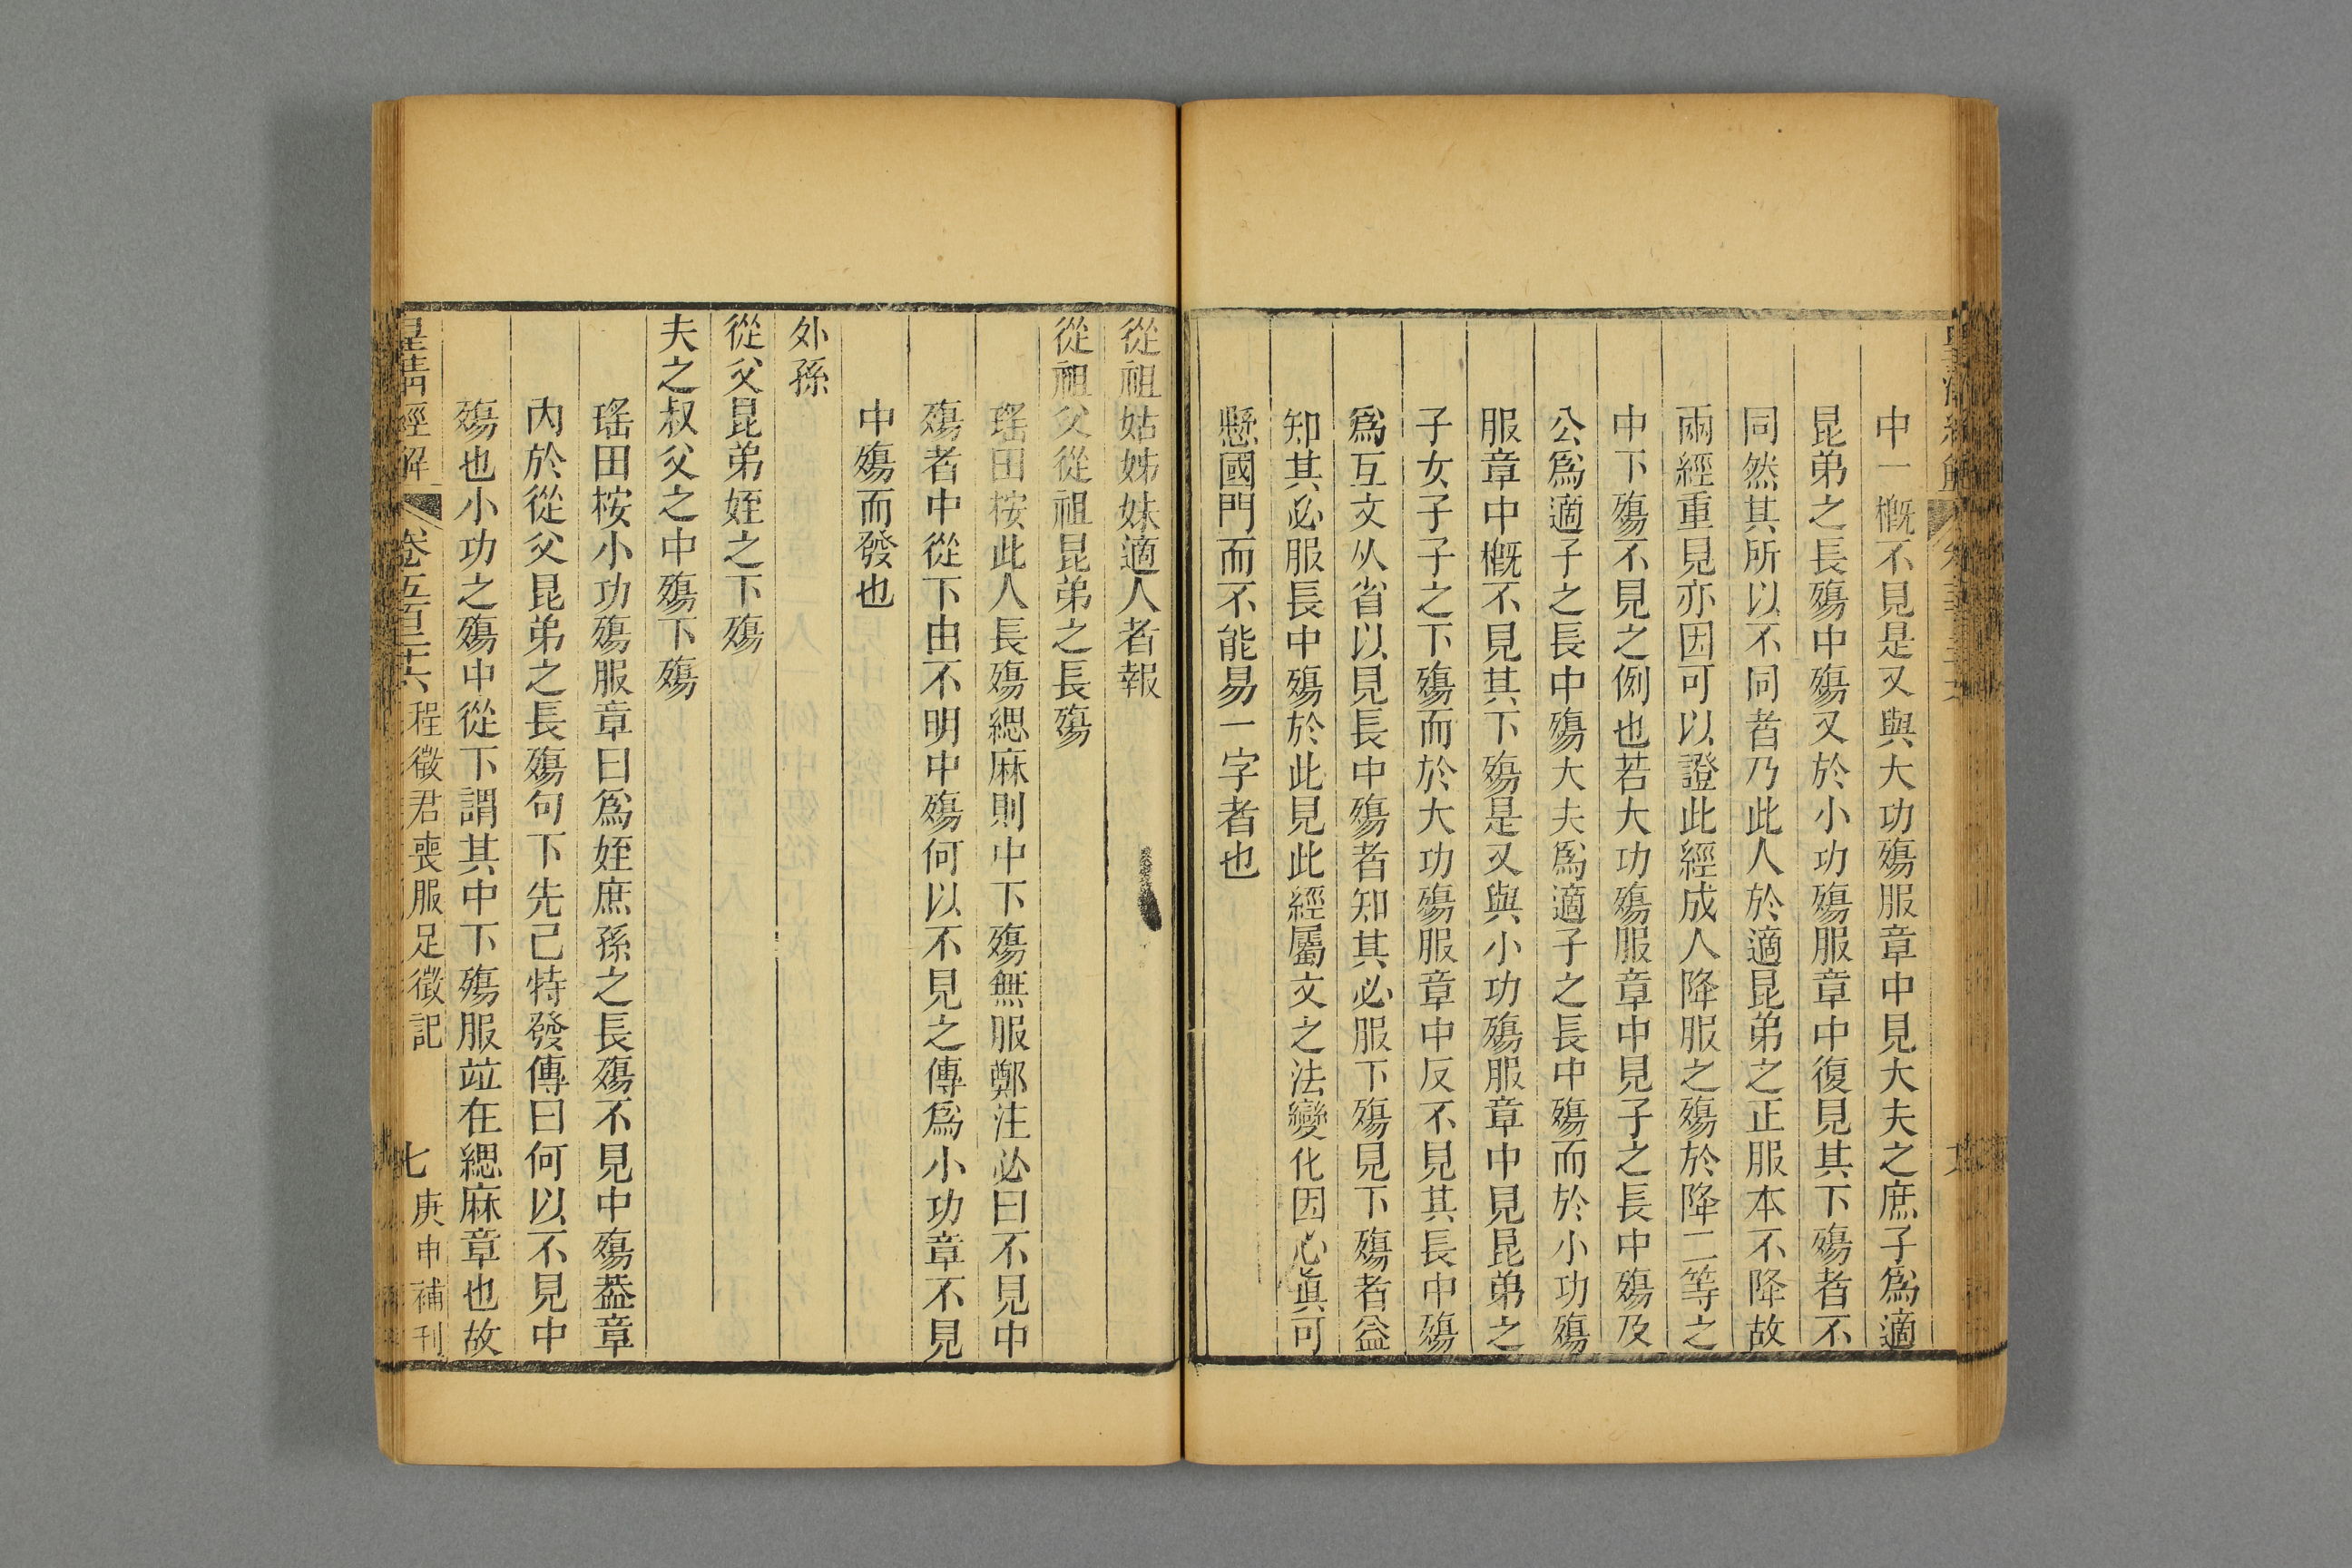 中一槪不見是又與大功殤服章中見大夫之庶子爲適
昆弟之長殤中殤又於小功殤服章中復見其下殤者不
同然其所以不同者乃此人於適昆弟之正服本不降故
兩經重見亦因可以證此經成人降服之殤於降二等之
中下殤不見之例也若大功殤服章中見子之長中殤及
公爲適子之長中殤大夫爲適子之長中殤而於小功殤
服章中槪不見其下殤是又與小功殤服章中見昆弟之
子女子子之下殤而於大功殤服章中反不見其長中殤
爲互文从省以見長中殤者知其必服下殤見下殤者益
知其必服長中殤於此見此經屬文之法變化因心眞可
懸國門而不能易一字者也
從祖姑姊妹適人者報
從祖父從祖昆弟之長殤
瑤田桉此人長殤緦麻則中下殤無服鄭注必曰不見中
殤者中從下由不明中殤何以不見之傳爲小功章不見
中殤而發也
外孫
從父昆弟姪之下殤
夫之叔父之中殤下殤
瑤田桉小功殤服章曰爲姪庶孫之長殤不見中殤葢章
內於從父昆弟之長殤句下先已特發傳曰何以不見中
殤也小功之殤中從下謂其中下殤服竝在緦麻章也故
皇淸經解 卷五百二十六 程徵君喪服足徵記 七 庚申補刊